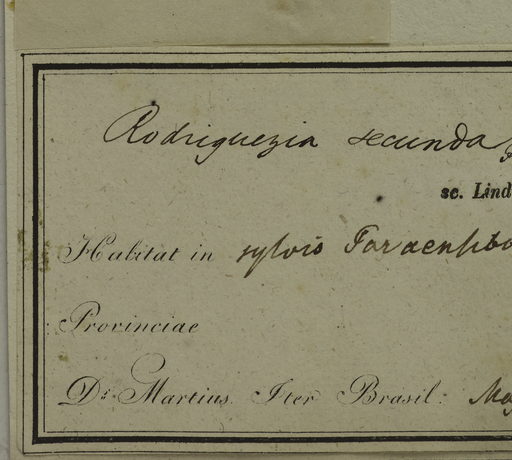 Rodriguezia secunda
sc. Lind
Habitat in sylvis Paraensibo
Provinciae
Dr. Martius Iter Brasil: